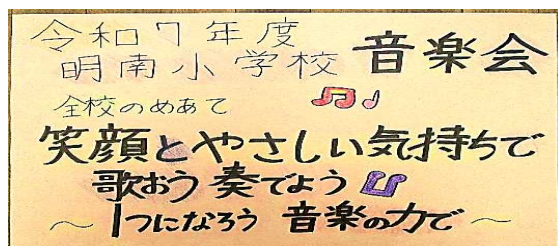 令和7年度
明南小学校 音楽会
全校のめあて
笑顔とやさしい気持ちで
歌おう 奏でよう
～1つになろう 音楽の力で～